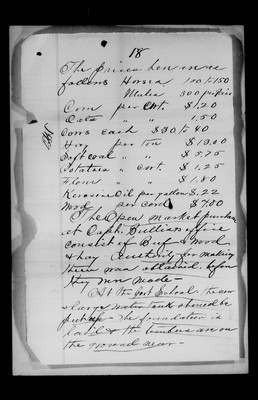 18
The prices here in as
follows Horses 100 to 150
Mules 300 pr pair
Corn per Cwt. $1.20
Oats " " 1.50
Cows each $30 to 40
Hay per ton $10.00
Soft coal " " $5.75
Potatoes " Cwt. $1.25
Flour " $1.80
Kerosine Oil per gallon $.22
Wood per cord $7.00
The Open market purchases
at Capt. Bullis's office
consist of Beef & Wood
& hay Authority for making
these was obtained before
they were made-
At the Govt School, the new
& large water tank should be
put up- The foundation is
laid & the timbers are on
the ground near-